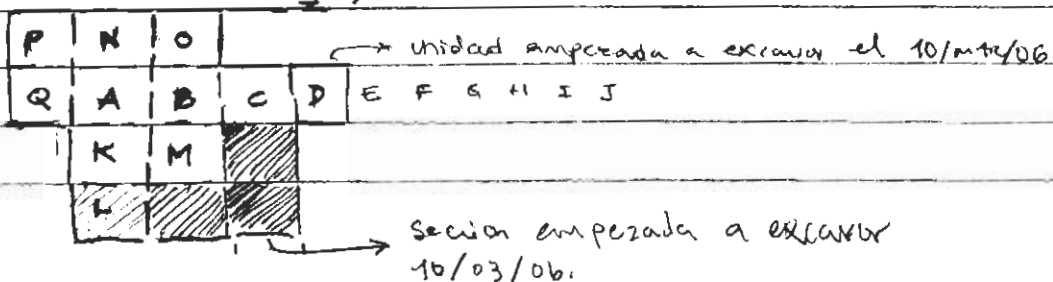 P N O
→ unidad empezada a excavar el 10/mar/06
Q A B C D E F G H I J
K M
L
→ sección empezada a excavar
10/03/06.